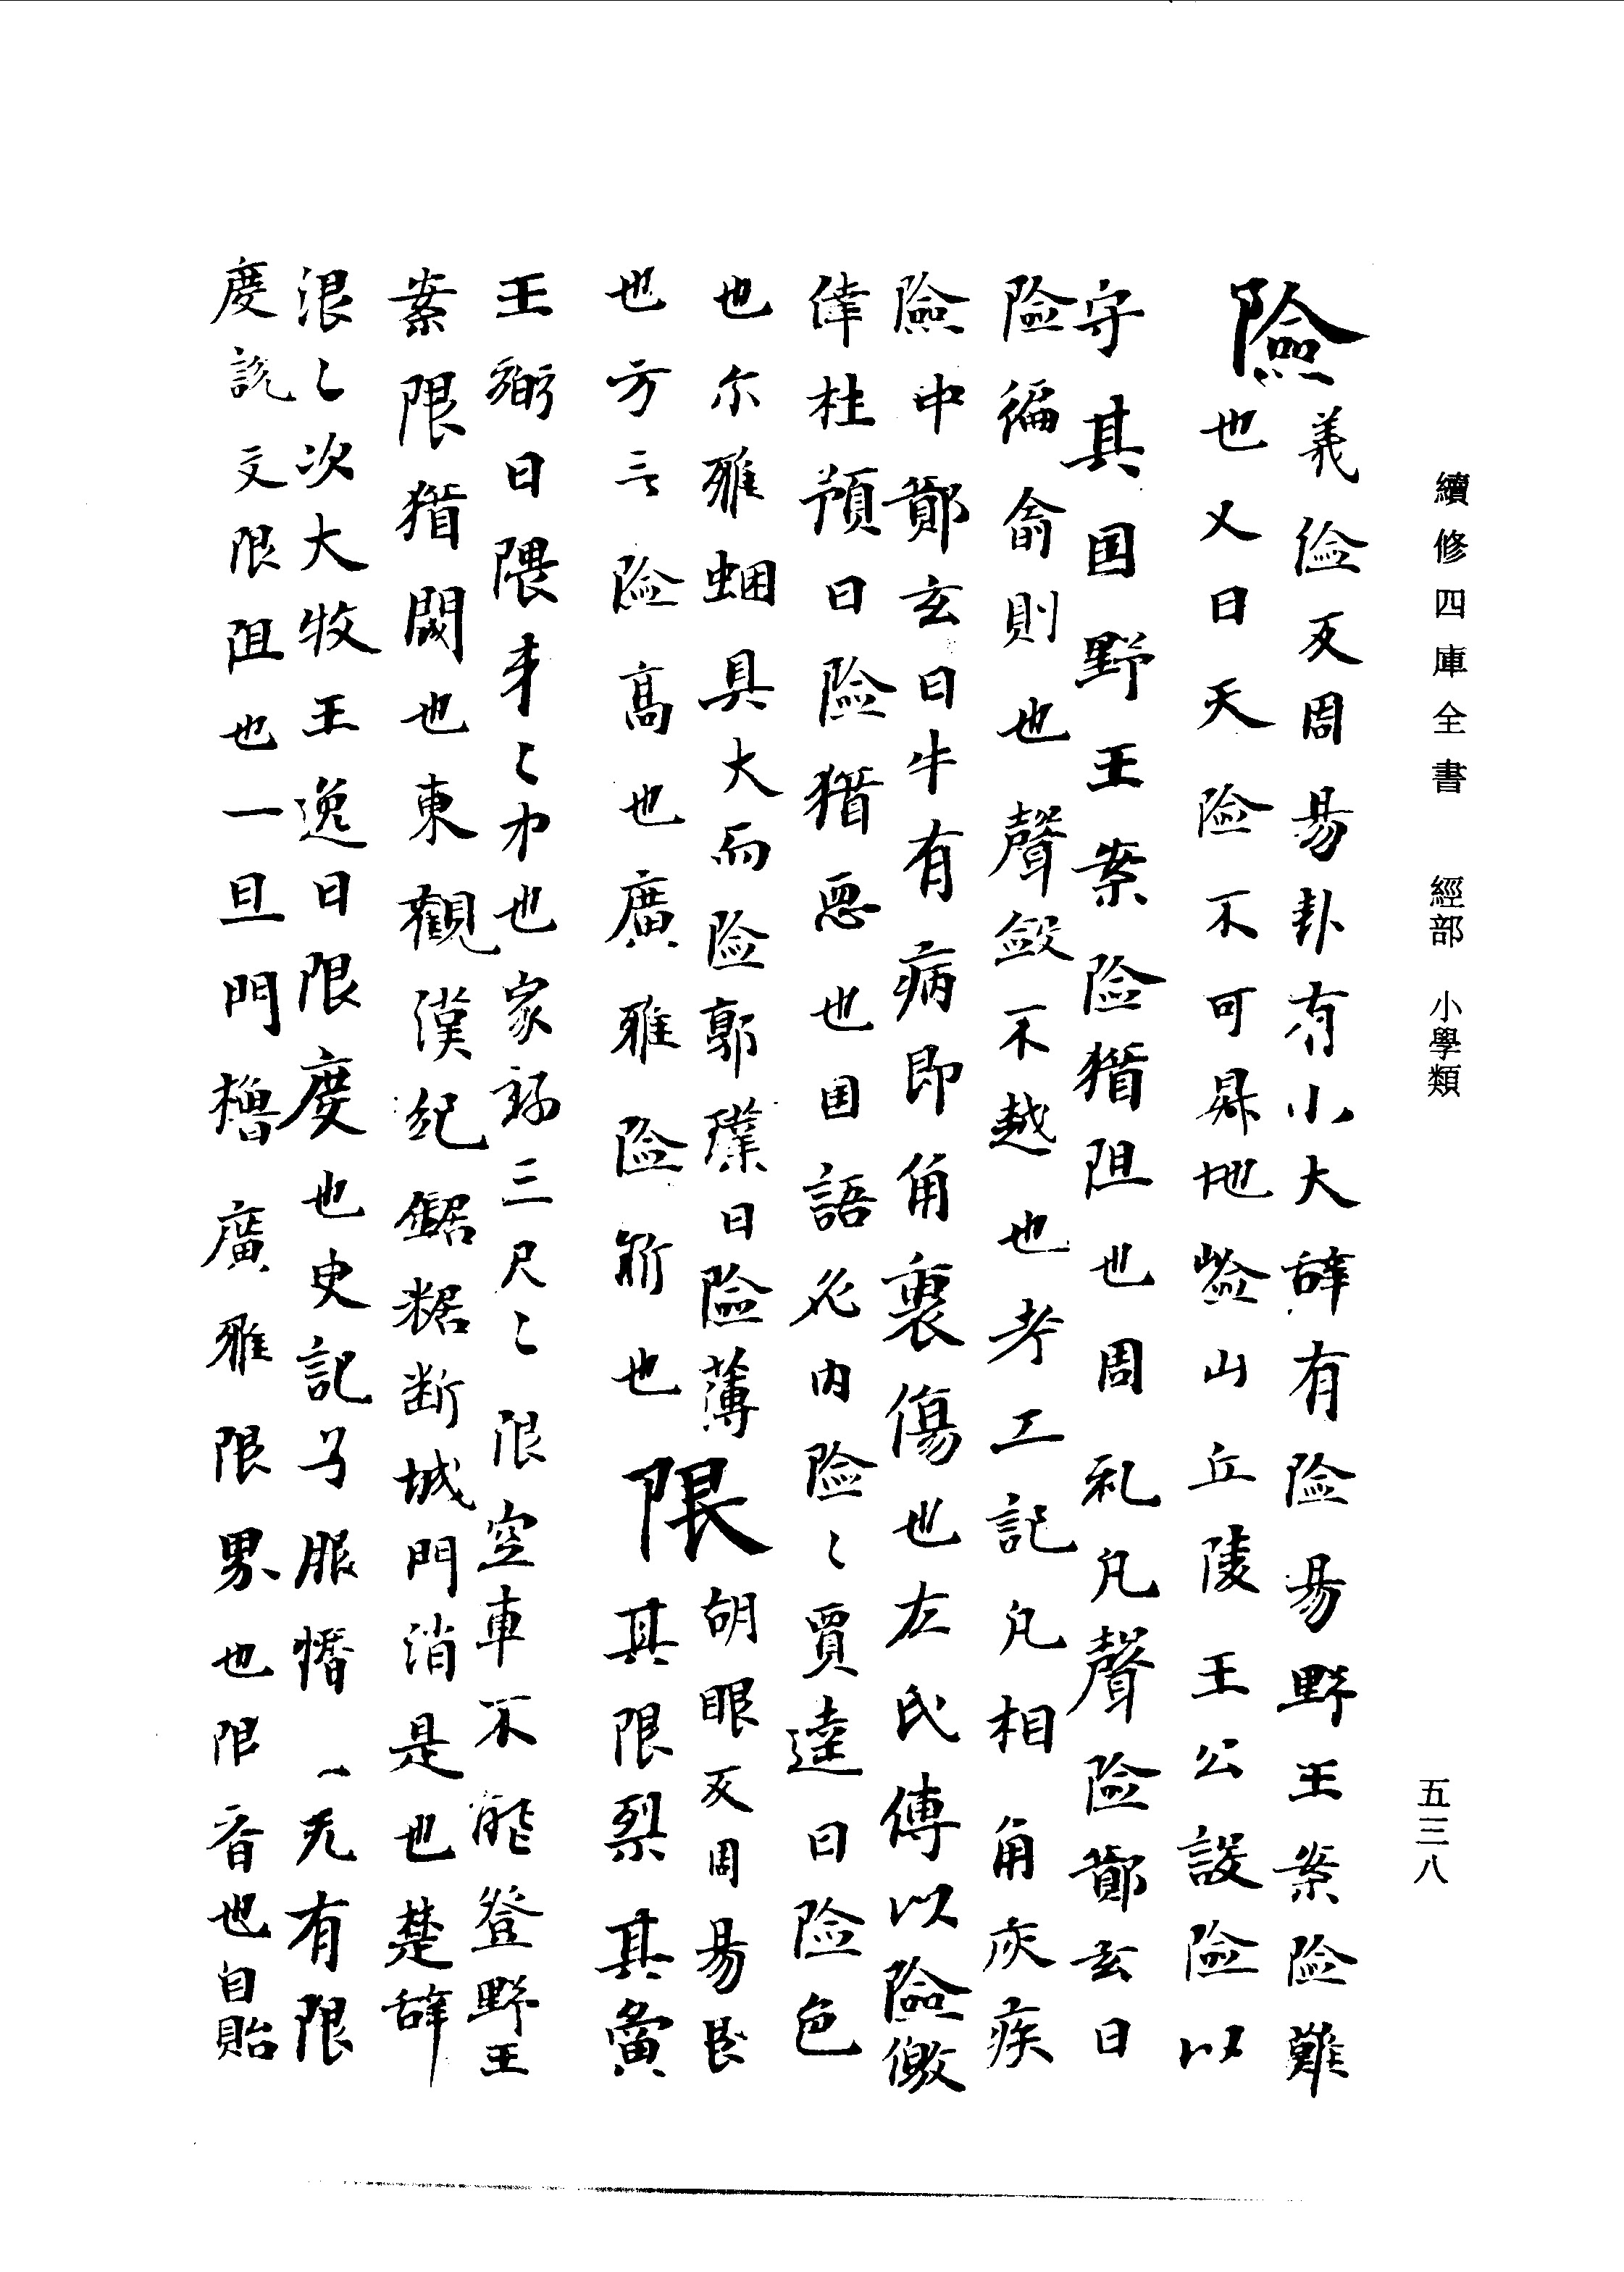 續修四庫全書 經部 小學類 五三八
險
義儉反周易卦有小大辝有險易野王案險難
也又曰天險不可昇地嶮山丘陵王公設險以
守其国野王案險猶阻也周礼凡聲險鄭玄曰
險徧侖則也聲斂不越也考工記凡相角疢疾
險中鄭玄曰牛有病即角裏傷也左氏傳以險儌
倖杜預曰險猶惡也国語必内險〻賈逵曰險色
也尓雅蜠具大而險郭璞曰險薄
也方言險高也廣雅險也
限
胡眼反周易艮
其限裂其夤
王弼曰隈身〻中也家語三尺〻限空車不能登野王
案限猶閡也東觀漢紀鋸断城門消是也楚辝
限〻次大牧王逸曰限度也史記与服僭一无有限
度說文限阻也一旦門廣雅限界也限斉也自貽